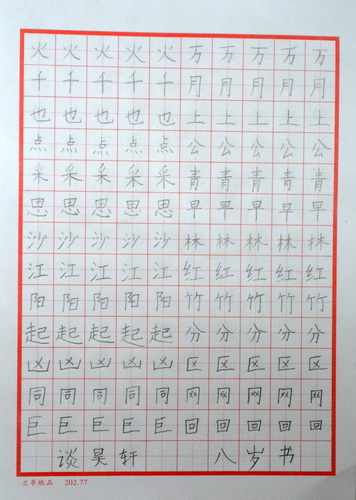 火火火火火万万万万万
千千千千千月月月月月
也也也也也上上上上上
点点点点点公公公公公
采采采采采青青青青青
思思思思思早早早早早
沙沙沙沙沙林林林林林
江江江江江红红红红红
阳阳阳阳阳竹竹竹竹竹
起起起起起分分分分分
凶凶凶凶凶区区区区区
同同同同同网网网网网
巨巨巨巨巨回回回回回
谈昊轩 八岁书
兰亭纸品 202.77